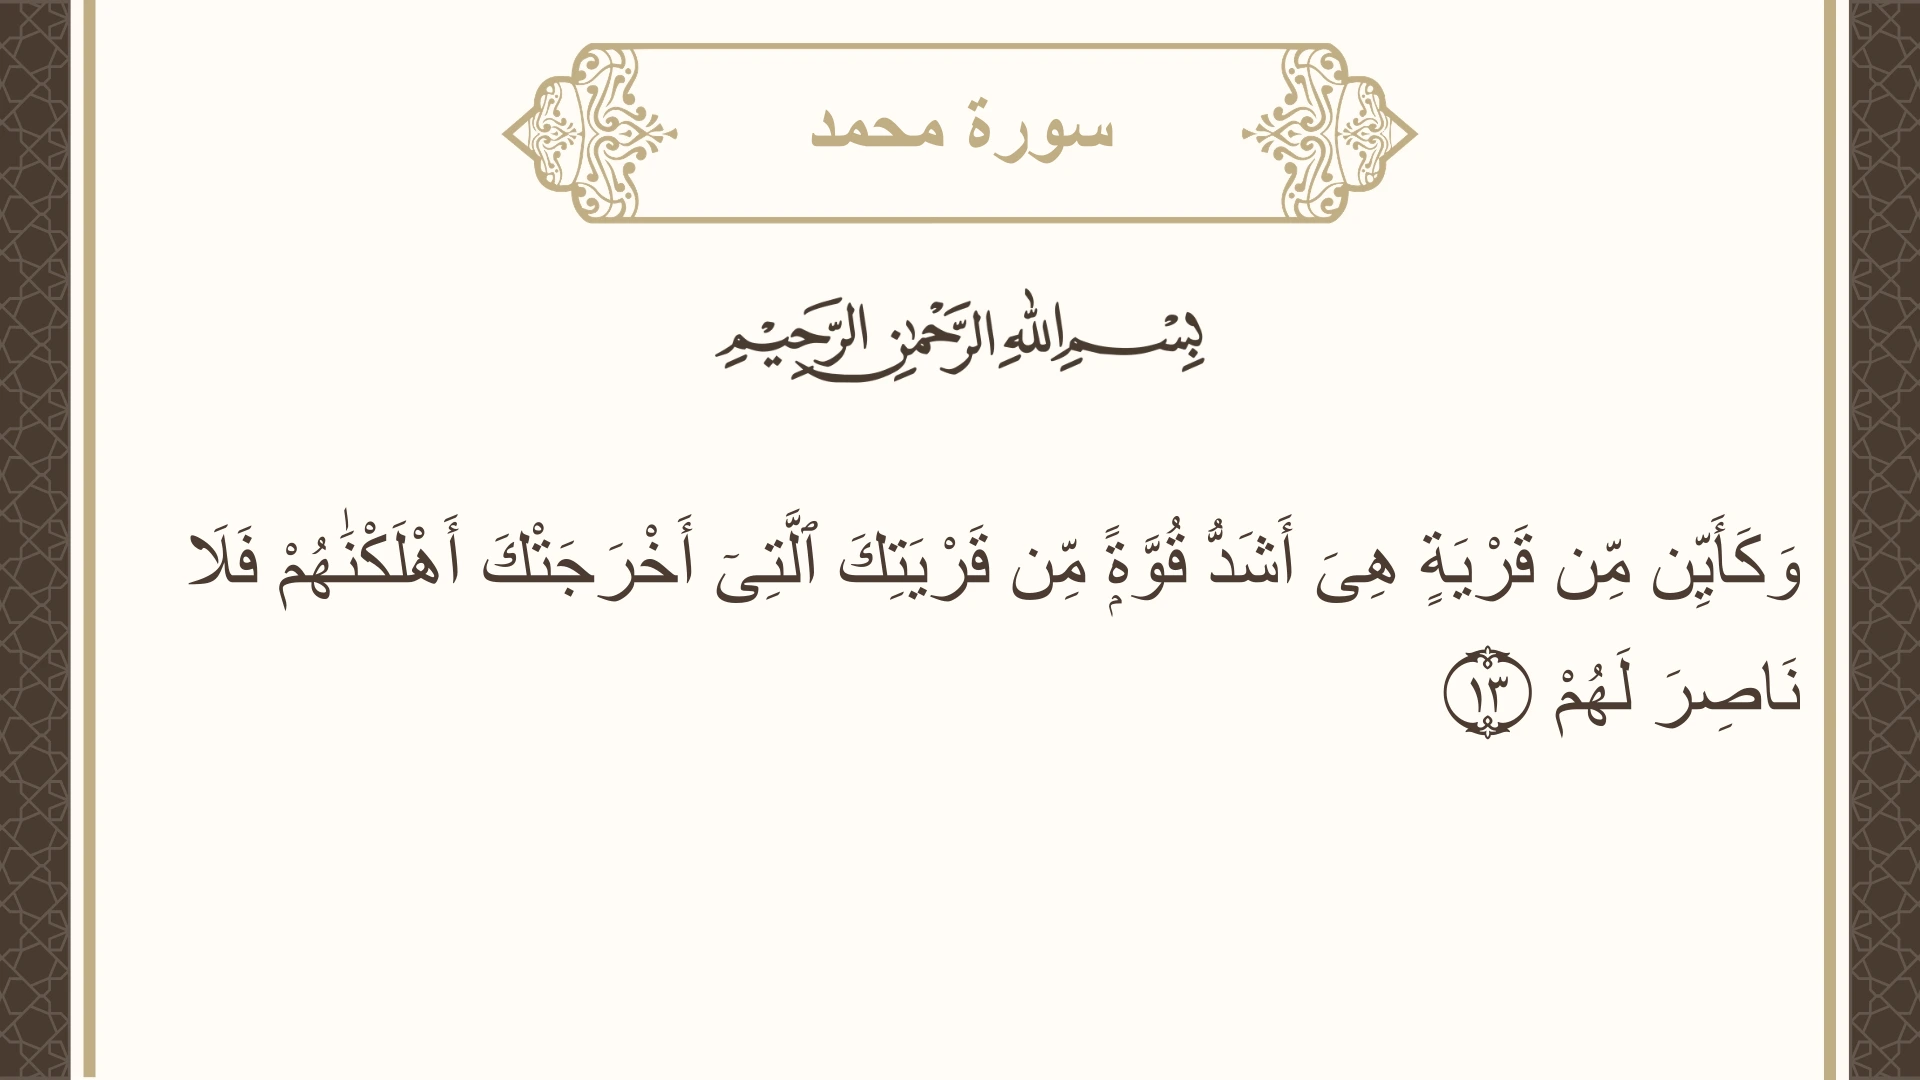 سورة محمد
بِسْمِ اللهِ الرَّحْمٰنِ الرَّحِيْمِ
وَكَأَيِّن مِّن قَرْيَةٍ هِىَ أَشَدُّ قُوَّةًۭ مِّن قَرْيَتِكَ ٱلَّتِىٓ أَخْرَجَتْكَ أَهْلَكْنَـٰهُمْ فَلَا
نَاصِرَ لَهُمْ ١٣